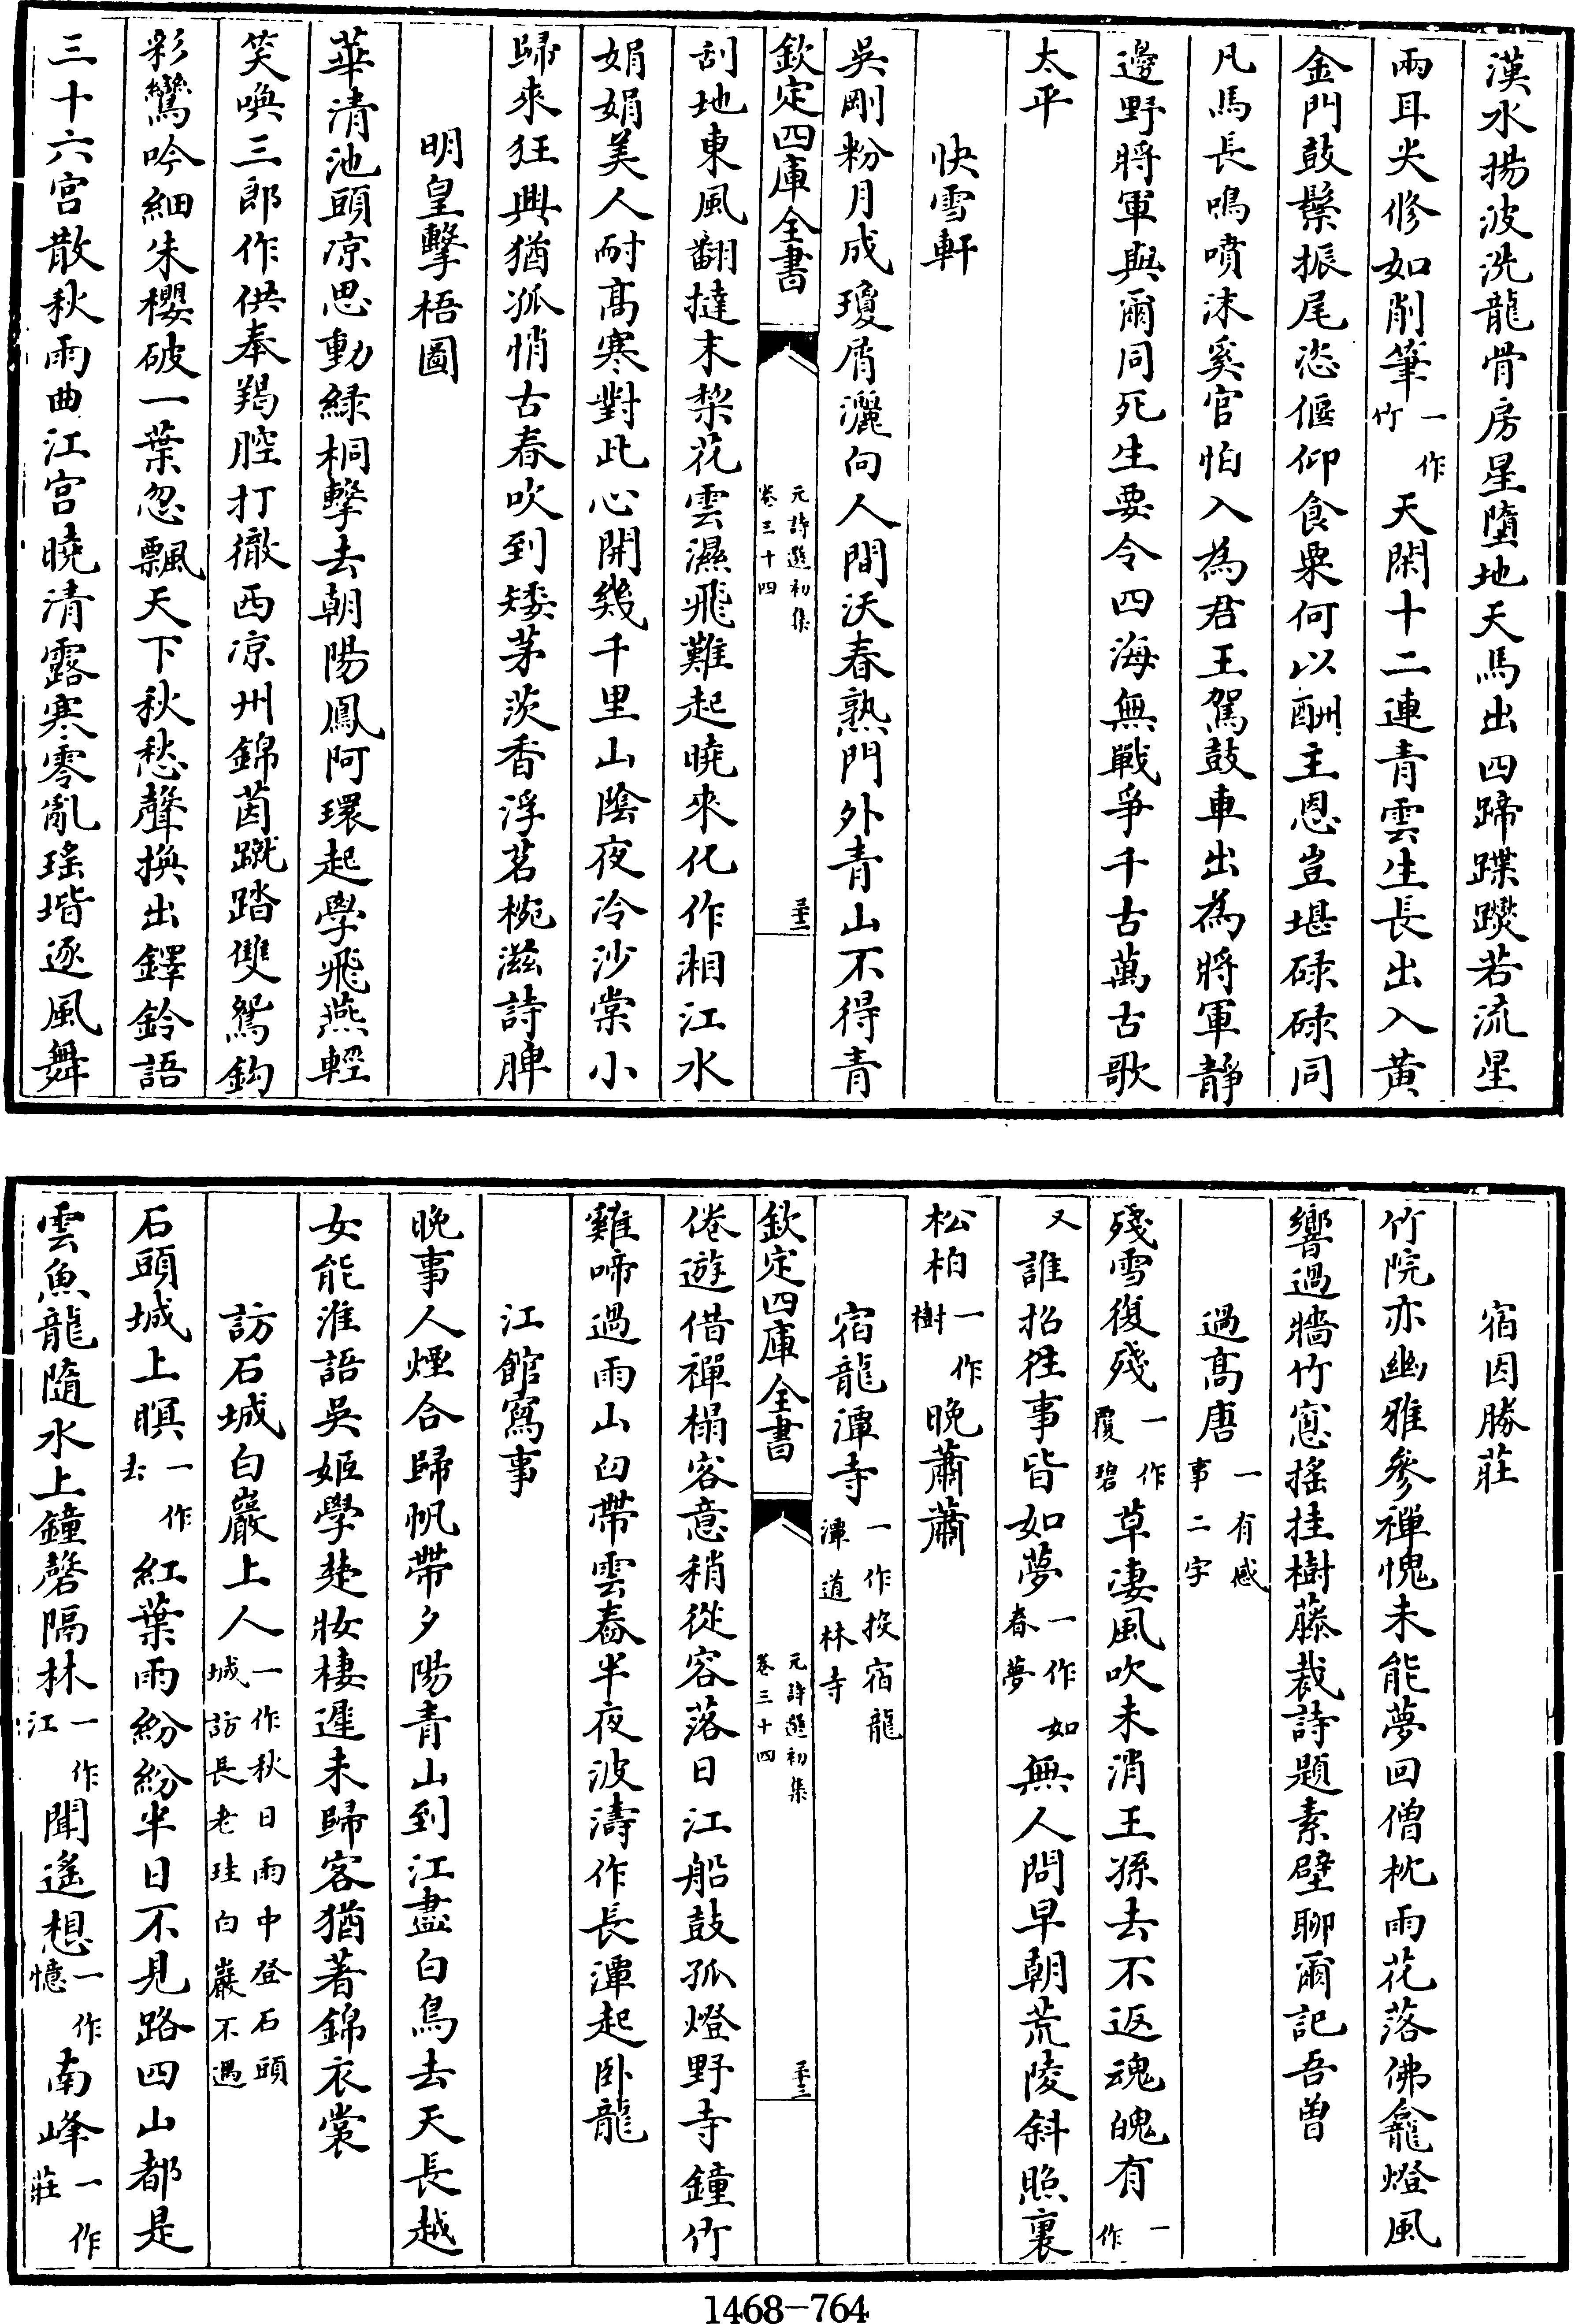 漢水揚波洗龍骨房星墮地天馬出四蹄蹀躞若流星
兩耳尖修如削筆一作竹天閑十二連青雲生長出入黃
金門鼓鬃振尾恣偃仰食粟何以酬主恩豈堪碌碌同
凡馬長鳴噴沫奚官怕入為君王駕鼓車出為將軍靜
邊野將軍與爾同死生要令四海無戰爭千古萬古歌
太平
快雪軒
吳剛粉月成瓊屑灑向人間沃春熟門外青山不得青
欽定四庫全書
元詩選初集
卷三十四
三十二
刮地東風翻撻末梨花雲濕飛難起曉來化作湘江水
娟娟美人耐高寒對此心開幾千里山陰夜冷沙棠小
歸來狂興猶孤悄古春吹到矮茅茨香浮茗椀滋詩脾
明皇擊梧圖
華清池頭凉思動綠桐擊去朝陽鳳阿環起學飛燕輕
笑喚三郎作供奉羯腔打徹西凉州錦茵蹴踏雙鴛鈎
彩鸞吟細朱櫻破一葉忽飄天下秋愁聲換出鐸鈴語
三十六宮散秋雨曲江宮曉清露寒零亂瑤堦逐風舞
宿因勝莊
竹院亦幽雅參禪愧未能夢回僧枕雨花落佛龕燈風
響過牆竹窓搖挂樹藤裁詩題素壁聊爾記吾曾
過高唐一有感事二字
殘雪復殘一作覆碧草凄風吹未消王孫去不返魂魄有一作
又誰招往事皆如夢一作如春夢無人問早朝荒陵斜照裏
松柏一作樹晚蕭蕭
宿龍潭寺一作投宿龍潭道林寺
欽定四庫全書
元詩選初集
卷三十四
三十三
倦遊借禪榻客意稍從容落日江船鼓孤燈野寺鐘竹
雞啼過雨山臼帶雲舂半夜波濤作長潭起卧龍
江館寫事
晚事人煙合歸帆帶夕陽青山到江盡白鳥去天長越
女能淮語吳姬學楚妝棲遲未歸客猶著錦衣裳
訪石城白巖上人一作秋日雨中登石頭城訪長老珪白巖不遇
石頭城上瞑一作去紅葉雨紛紛半日不見路四山都是
雲魚龍隨水上鐘磬隔林一作江聞遙想一作憶南峰一作莊
1468-764